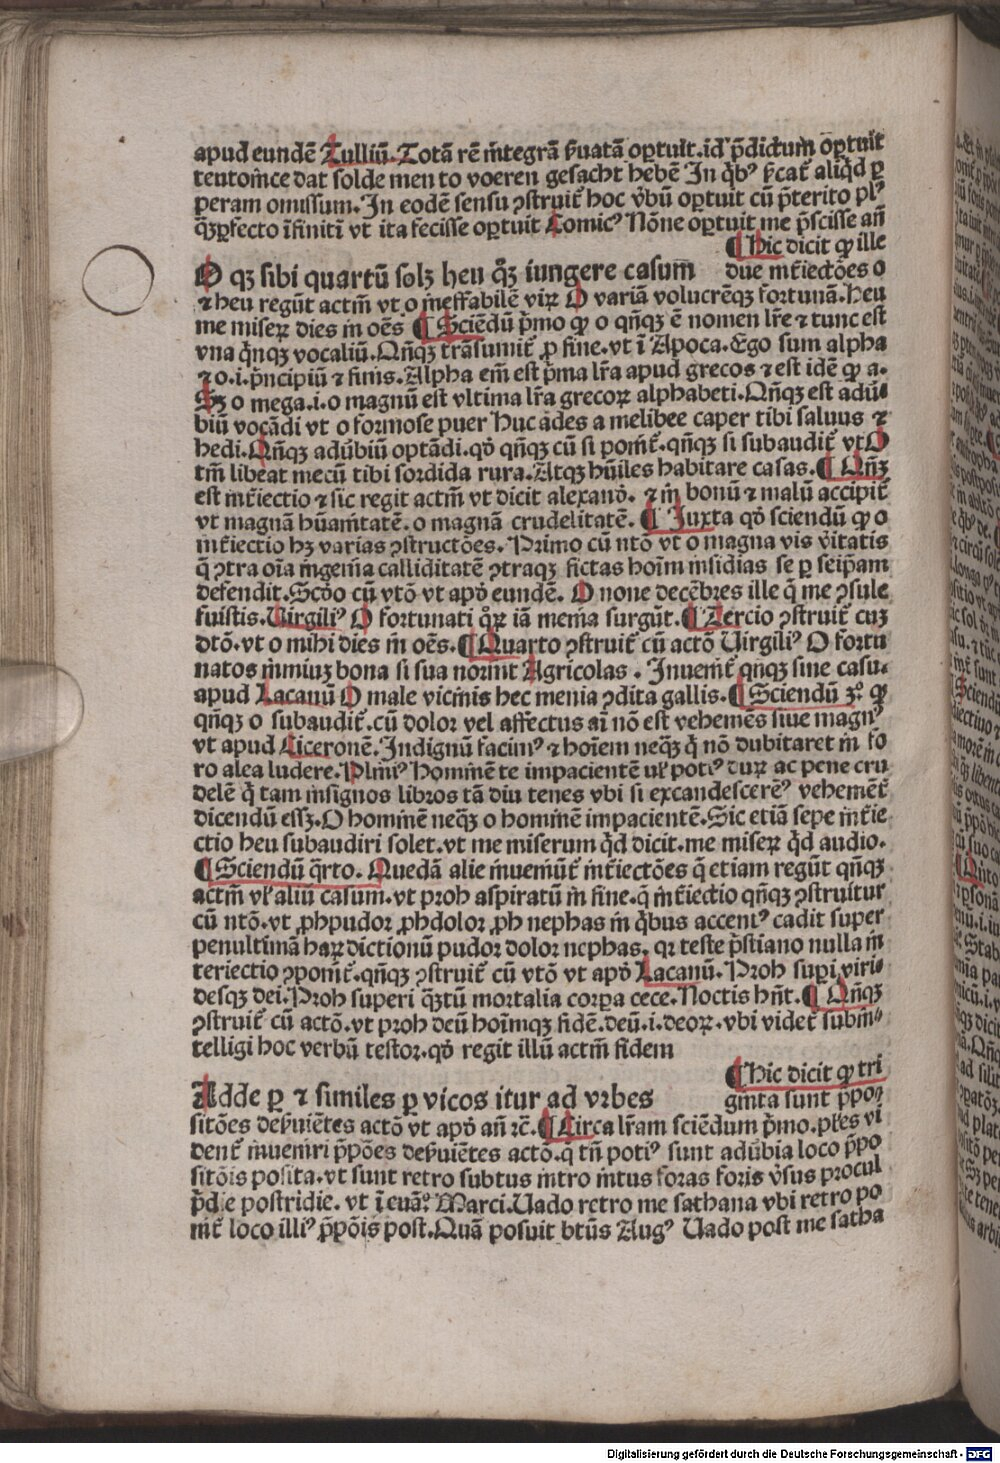 apud eundē Tulliū. Totā rē integrā ẜuatā oꝑtuit. id p̄dictum oꝑtuit
teutonice dat solde men to voeren gesacht hebē In q̇bꝰ p̱cat̄ aliq̇d ꝑ
peram omissum. In eodē sensu ꝯstruit̄ hoc v̇bū oꝑtuit cū p̄terito plꝰ
q̄ꝫꝑfecto īfinitī vt ita fecisse oꝑtuit Comicꝰ Nōne oꝑtuit me p̄scisse an̄
¶ Hic dicit ꝙ ille
O qꝫ sibi quartū solꝫ heu q̄ꝫ iungere casum due int̄iectōes o
⁊ heu regūt actm̄ vt o ineffabilē viꝝ O variā volucrēqꝫ fortunā. Heu
me miseꝝ dies in oēs ¶ Sciēdū p̄mo ꝙ o qn̄qꝫ ē nomen lr̄e ⁊ tunc est
vna q̇nqꝫ vocaliū. Qn̄qꝫ trāsumit̄ ꝓ fine. vt ī Apoca. Ego sum alpha
⁊ o. i. p̄ncipiū ⁊ finis. Alpha em̄ est p̄ma lr̄a apud grecos ⁊ est idē ꝙ a.
Sꝫ o mega. i. o magnū est vltima lr̄a grecoꝝ alphabeti. Qn̄qꝫ est adū⸗
biū vocādi vt o formose puer Huc ades a melibee caper tibi saluus ⁊
hedi. Qn̄qꝫ adūbiū optādi. qd̄ qn̄qꝫ cū si ponit̄. qn̄qꝫ si subaudit̄ vt O
tm̄ libeat mecū tibi sordida rura. Atqꝫ hūiles habitare casas. ¶ Qn̄qꝫ
est int̄iectio ⁊ sic regit actm̄ vt dicit alexand̄. ⁊ in bonū ⁊ malū accipit̄
vt magnā hūanitatē. o magnā crudelitatē. ¶ Juxta qd̄ sciendū ꝙ o
int̄iectio hꝫ varias ꝯstructōes. Primo cū ntō vt o magna vis v̇itatis
q̄ ꝯtra oīa ingenia calliditatē ꝯtraqꝫ fictas hoīm insidias se ꝑ seip̄am
defendit. Scd̄o cū vtō vt apd̄ eundē. O none decēbres ille q̄ me ꝯsule
fuistis. Uirgiliꝰ O fortunati q̊ꝝ iā menia surgūt. ¶ Tercio ꝯstruit̄ cuꝫ
dtō. vt o mihi dies in oēs. ¶ Quarto ꝯstruit̄ cū actō Uirgiliꝰ O fortu
natos nimiuꝫ bona si sua norint Agricolas. Inuenit̄ qn̄qꝫ sine casu.
apud Lacanū O male vicinis hec menia ꝯdita gallis. ¶ Sciendū 3ͦ. ꝙ
qn̄qꝫ o subaudit̄. cū dolor vel affectus aī nō est vehemēs siue magnꝰ
vt apud Ciceronē. Indignū facimꝰ ⁊ hoīem neqꝫ q̄ nō dubitaret in fo
ro alea ludere. Plīniꝰ Hominē te impacientē vl̓ potiꝰ duꝝ ac pene cru
delē q̄ tam insignos libros tā diu tenes vbi si excandescerēꝰ vehemēt̄
dicendū essꝫ. O hominē neqꝫ o hominē impacientē. Sic etiā sepe int̄ie
ctio heu subaudiri solet. vt me miserum q̇d dicit. me miseꝝ q̇d audio.
¶ Sciendū q̄rto. Quedā alie inueniūt̄ int̄iectōes q̄ etiam regūt qn̄qꝫ
actm̄ vl̓ aliū casum. vt proh aspiratū in fine. q̄ int̄iectio qn̄qꝫ ꝯstruitur
cū ntō. vt ꝓhpudor ꝓhdolor ꝓh nephas in q̇bus accentꝰ cadit super
penultimā haꝝ dictionū pudor dolor nephas. qꝛ teste p̄stiano nulla in
teriectio ꝯponit̄. qn̄qꝫ ꝯstruit̄ cū vtō vt apd̄ Lacanū. Proh suꝑi viri⸗
desqꝫ dei. Proh superi q̄ꝫtū mortalia corꝑa cece. Noctis hn̄t. ¶ Qn̄qꝫ
ꝯstruit̄ cū actō. vt proh deū hoīmqꝫ fidē. deū. i. deoꝝ. vbi videt̄ subin⸗
telligi hoc verbū testor. qd̄ regit illū actm̄ fidem
¶ Hic dicit ꝙ tri
Adde ꝑ ⁊ similes ꝑ vicos itur ad vrbes ginta sunt p̄po⸗
sitōes deẜuiētes actō vt apd̄ an̄ ⁊c̄. ¶ Circa lr̄am sciēdum p̄mo. pl̄es vi
dent̄ inueniri p̄pōes deẜuiētes actō. q̄ tn̄ potiꝰ sunt adūbia loco p̄po
sitōis posita. vt sunt retro subtus intro intus foras foris v̇sus procul
p̄die postridie. vt ī euāͦ. Marci. Uado retro me sathana vbi retro po
nit̄ loco illiꝰ p̄pōis post. Quā posuit btūs Augꝰ Uado post me satha
Digitalisierung gefördert durch die Deutsche Forschungsgemeinschaft - DFG